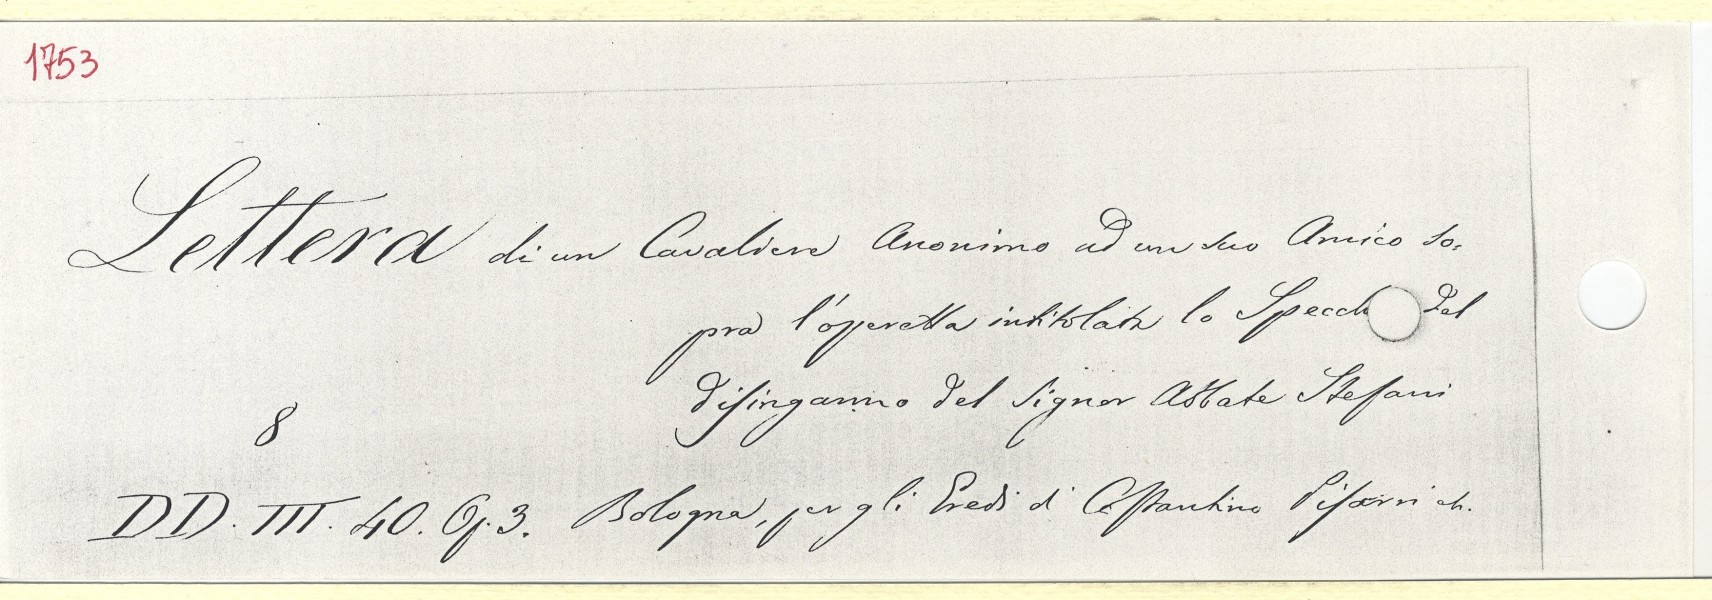 1753
Lettera di un Cavaliere Anonimo ad un suo Amico so=
pra l'operetta intitolata lo Specch del
disinganno del Signor Abbate Stefani
8
DD. III. 40. Op. 3. Bologna, per gli Eredi di Costantino Pisarri